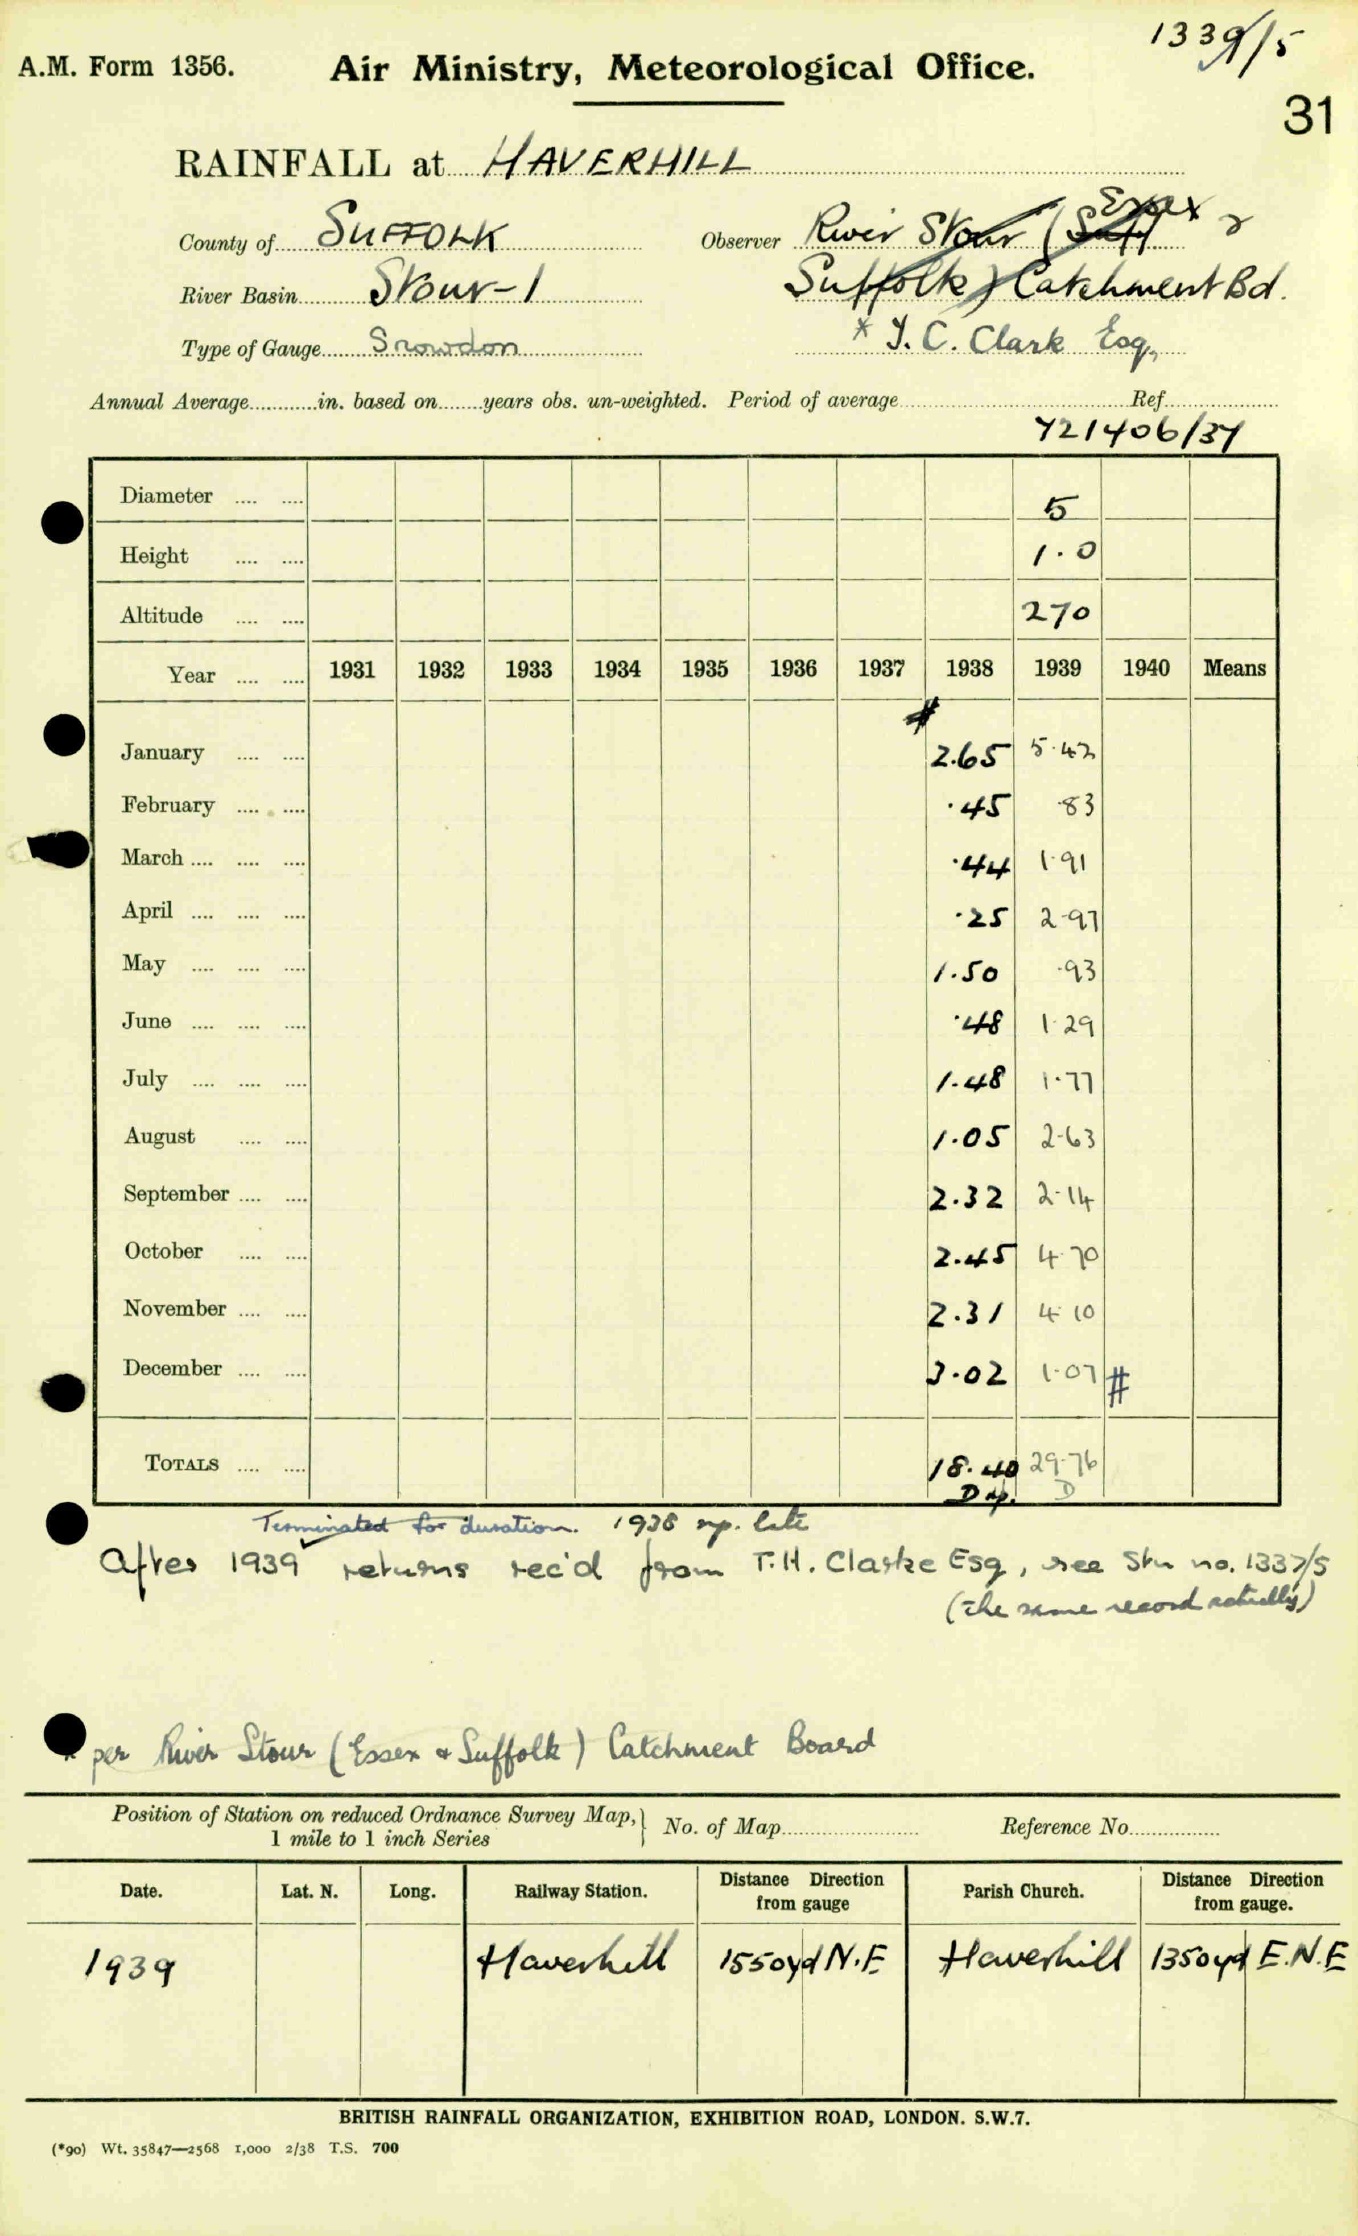 1339/5
A.M. Form 1356. Air Ministry, Meteorological Office.
31
RAINFALL at HAVERHILL
County of SUFFOLK Observer River Stour (Suff) Essex &
River Basin Stour-1 Suffolk) Catchment Bd.
Type of Gauge Snowdon * T. C. Clark Esq.
Annual Average............in. based on........years obs. un-weighted. Period of average................Ref................
721406/37
Diameter .... .... 5
Height .... .... 1.0
Altitude .... .... 270
Year .... .... 1931 1932 1933 1934 1935 1936 1937 1938 1939 1940 Means
#
January .... .... 2.65 5.42
February .... .... .45 .83
March .... .... .... .44 1.91
April .... .... .... .25 2.97
May .... .... .... 1.50 .93
June .... .... .... .48 1.29
July .... .... .... 1.48 1.77
August .... .... 1.05 2.63
September .... .... 2.32 2.14
October .... .... 2.45 4.70
November .... .... 2.31 4.10
December .... .... 3.02 1.07 #
TOTALS .... .... 18.40 29.76
D np. D
Terminated for duration. 1938 np. late
After 1939 returns rec'd from T.H. Clarke Esq, see Stn no. 1337/5
(the same record actually)
* per River Stour (Essex & Suffolk) Catchment Board
Position of Station on reduced Ordnance Survey Map, 1 mile to 1 inch Series } No. of Map................ Reference No................
Date. Lat. N. Long. Railway Station. Distance Direction from gauge Parish Church. Distance Direction from gauge.
1939 Haverhill 1550yd N.E Haverhill 1350yd E.N.E
BRITISH RAINFALL ORGANIZATION, EXHIBITION ROAD, LONDON. S.W.7.
(*90) Wt. 35847—2568 1,000 2/38 T.S. 700